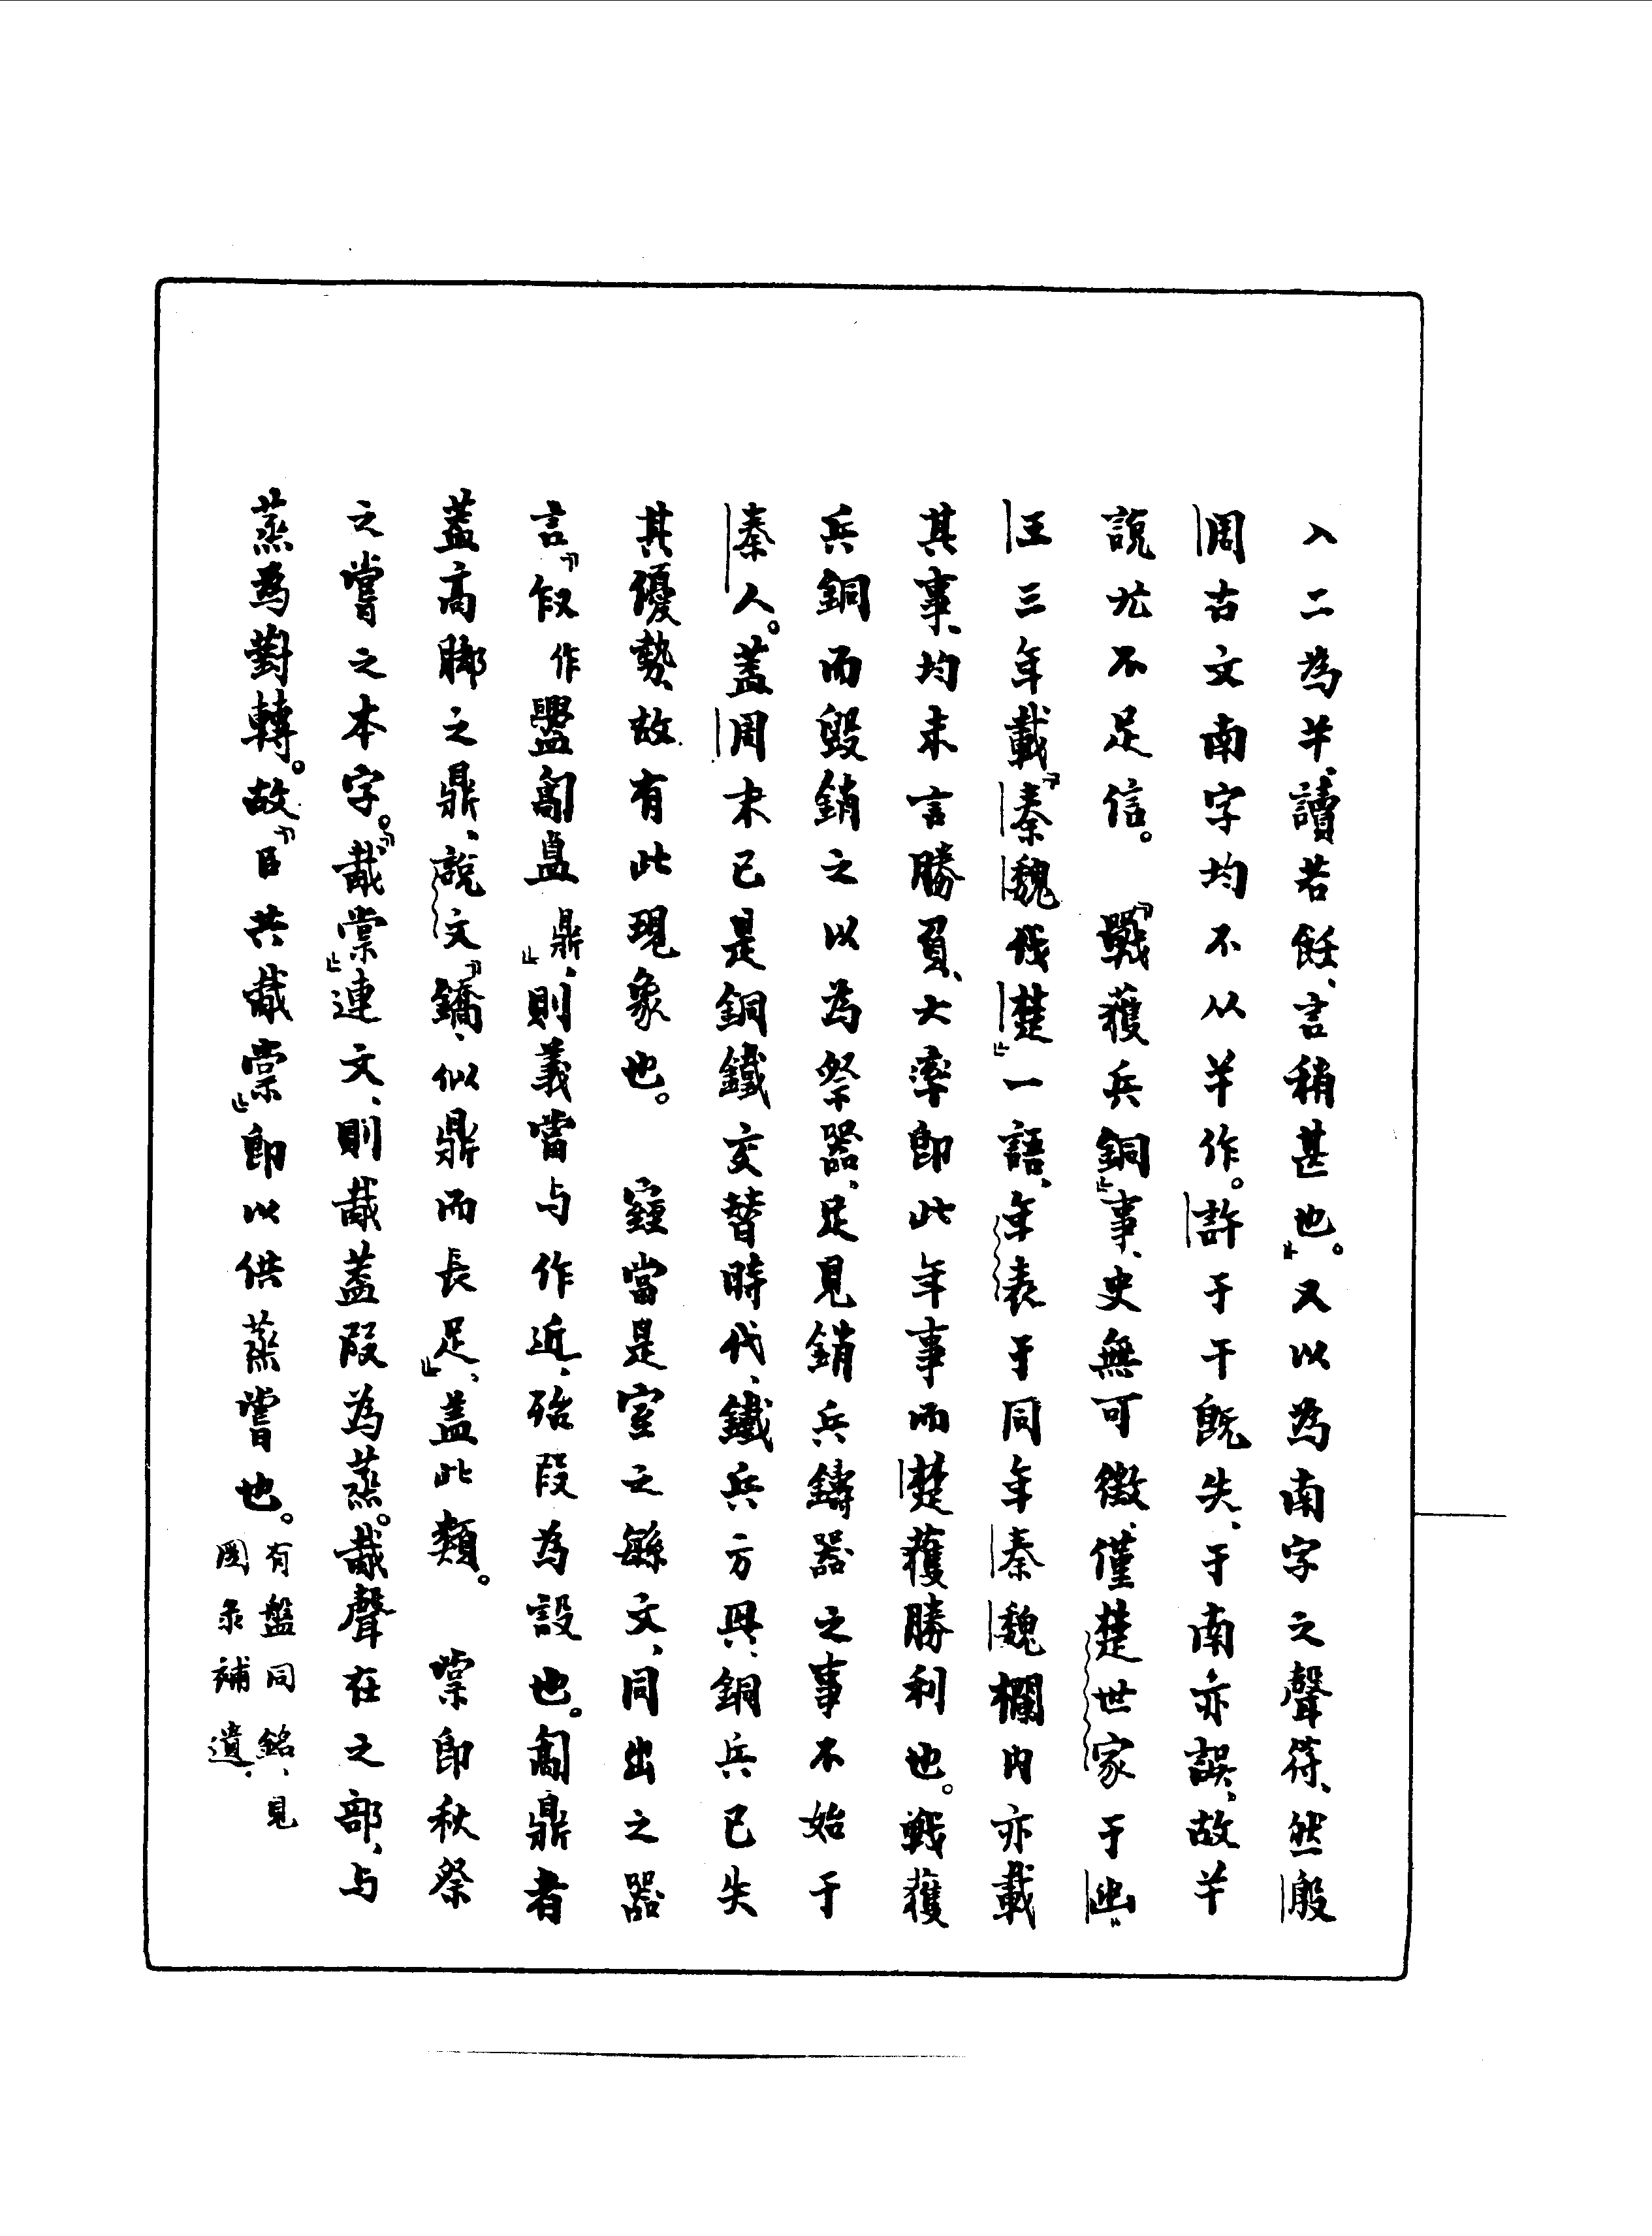 入二為𢆉、讀若飪、言稍甚也。』又以為南字之聲符、然殷
周古文南字均不从𢆉作。許于干既失、于南亦誤、故𢆉
說尤不足信。　『戰獲兵銅』事、史無可徵、僅楚世家于幽
王三年載『秦魏伐楚』一語、年表于同年秦魏欄內亦載
其事、均未言勝負、大率即此年事而楚獲勝利也。戰獲
兵銅而毀銷之以為祭器、足見銷兵鑄器之事不始于
秦人。蓋周末已是銅鐵交替時代、鐵兵方興、銅兵已失
其優勢、故有此現象也。　窒當是室之緐文、同出之器
言『作盥鬲盂鼎』、則義當与作近、殆叚為設也。鬲鼎者
蓋高腳之鼎、說文『鐈、似鼎而長足』、蓋此類。　棠即秋祭
之嘗之本字。『胾棠』連文、則胾蓋叚為蒸。胾聲在之部、与
蒸為對轉。故『㠯共胾棠』即以供蒸嘗也。
有盤同銘、見
圖彔補遺、